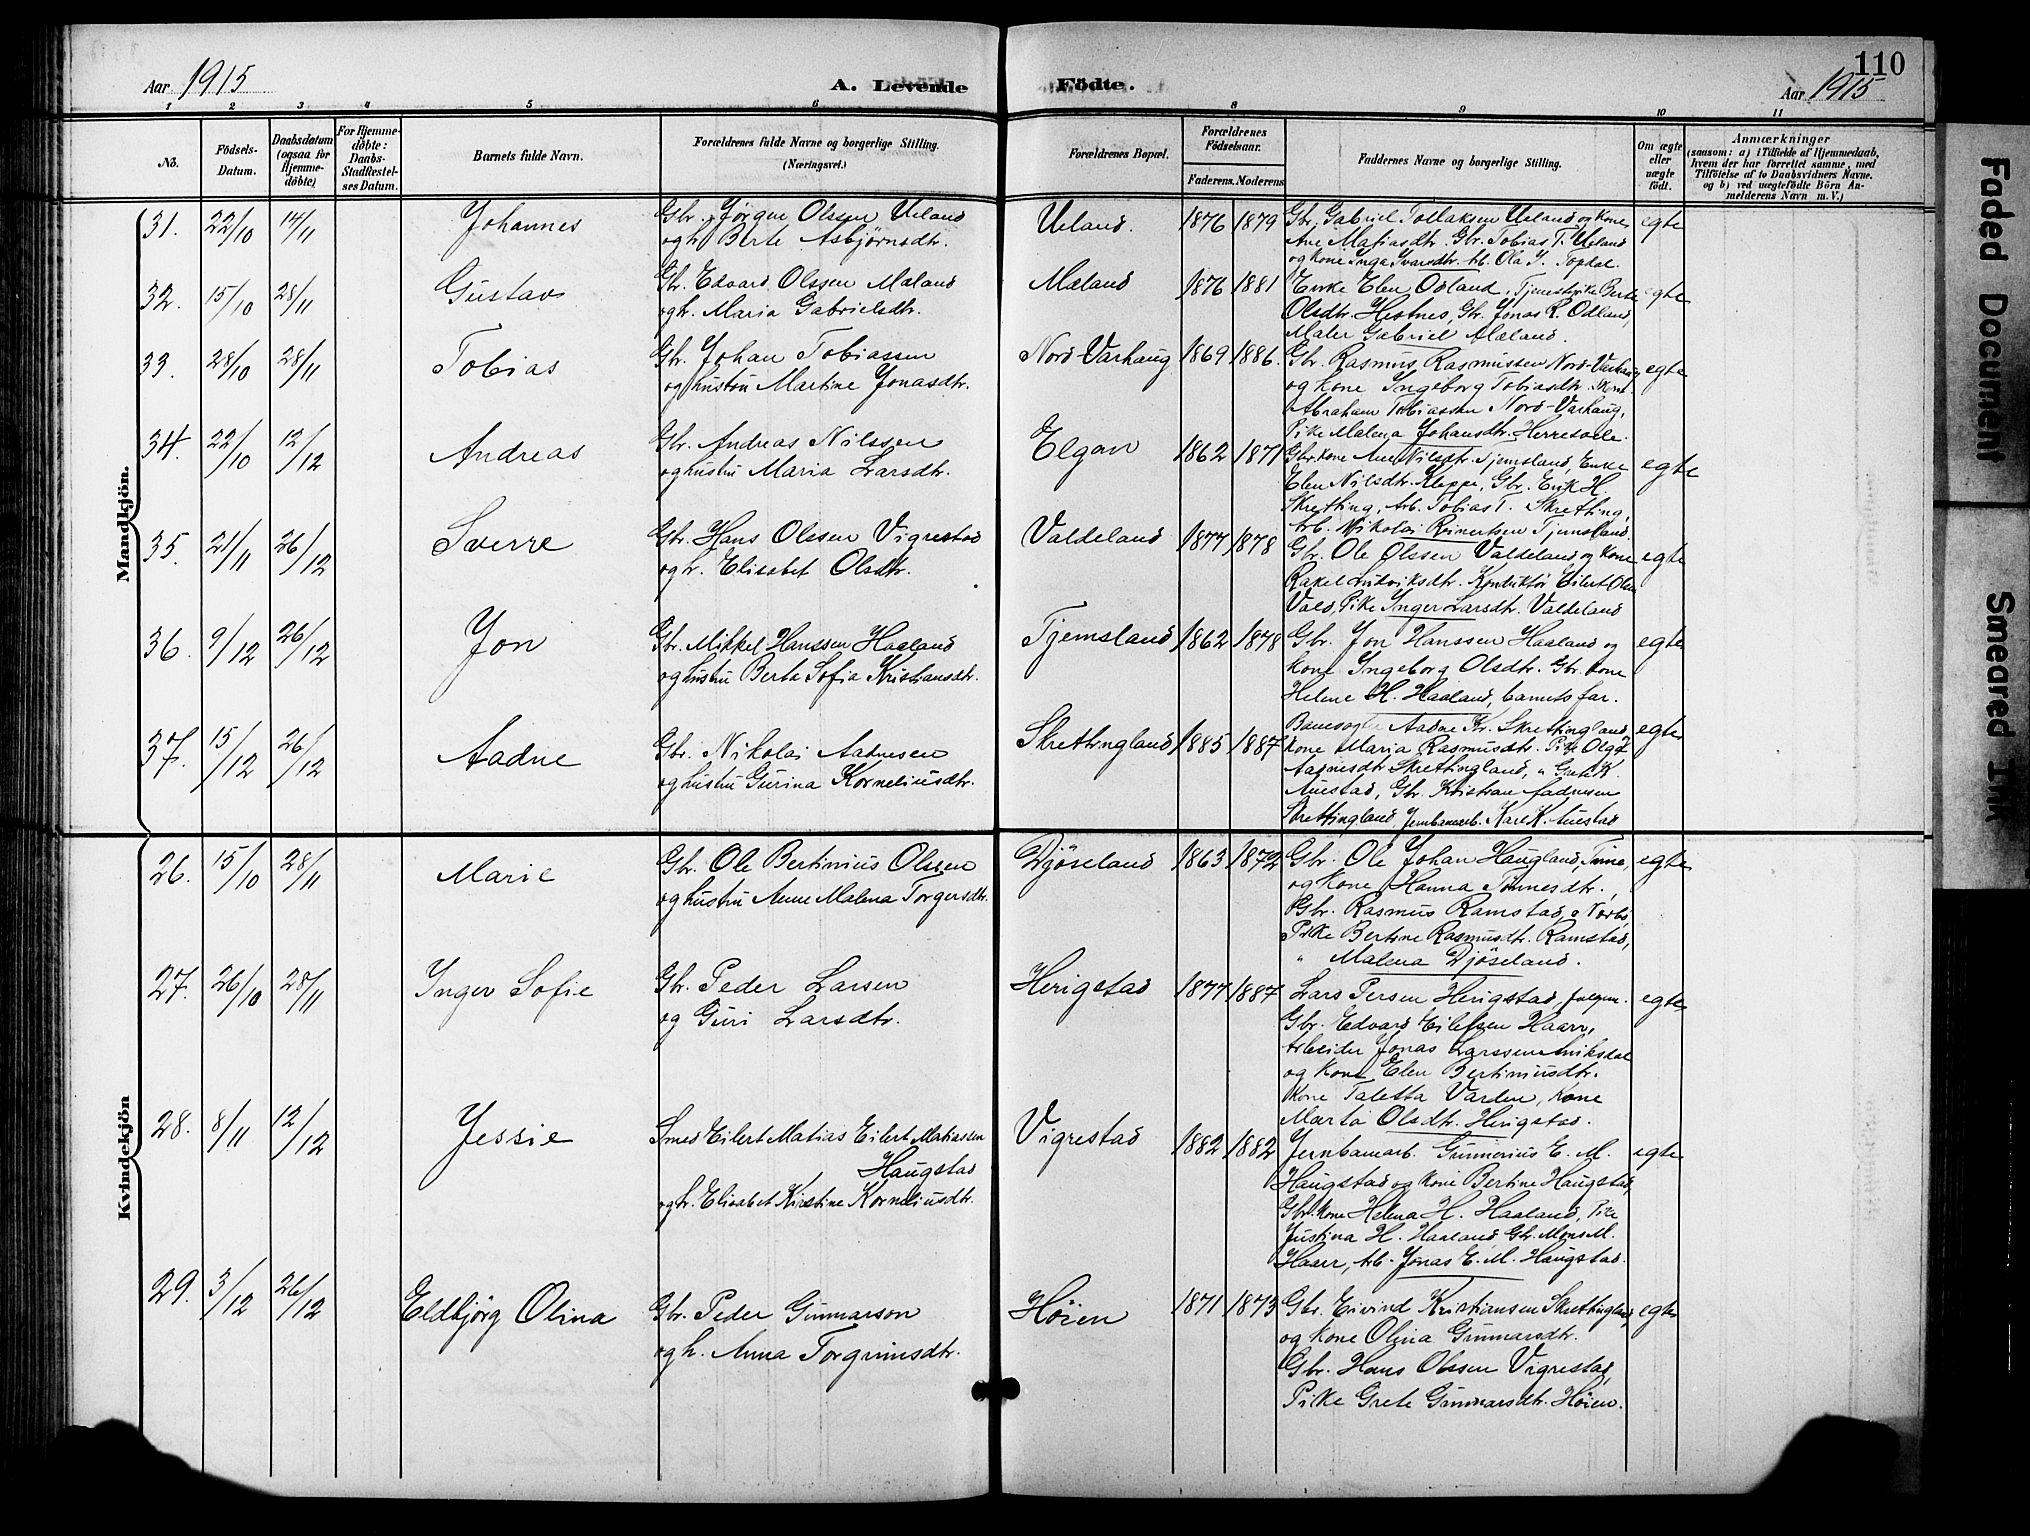 Aar 1915
A. Levende Födte.
110
Aar 1915
1 2 3 4 5 6 8 9 10 11
No.
Födsels-Datum.
Daabsdatum (ogsaa for Hjemme-döbte)
For Hjemme-döbte: Daabs-Stadfæstel-ses Datum.
Barnets fulde Navn.
Forældrenes fulde Navne og borgerlige Stilling.
(Næringsvei.)
Forældrenes Bopæl.
Forældrenes Födselsaar.
Faderens. Moderens
Faddernes Navne og borgerlige Stilling.
Om ægte eller uægte födt.
Anmærkninger
(saasom: a) i Tilfælde af Hjemmedaab, hvem der har forrettet samme, med Tilföielse af to Daabsvidners Navne. og b) ved uægtefödte Börn An-melderens Navn m. V.)
Mandkjön.
31. 22/10 14/11 Johannes Gbr. Jörgen Olssen Ueland Ueland. 1876 1879 Gbr. Gabriel Tollaksen Ueland og kone egte
og h. Berte Asbjörnsdtr. Ane Matiasdtr. Gbr. Tobias T. Ueland
og kone Inga Ivarsdtr. Arb. Ola J. Topdal.
32. 15/10 28/11 Gustav Gbr. Edvard Olssen Mæland Mæland 1876 1881 Enke Elen Odland, Tjenestepike Berte egte
og h. Maria Gabrielsdtr. Olsdtr. Hestnes, Gbr. Jonas R. Odland,
Maler Gabriel Mæland.
33. 28/10 28/11 Tobias Gbr. Johan Tobiassen Nord-Varhaug 1869 1886. Gbr. Rasmus Rasmussen Nord-Varhaug egte
og hustru Martine Jonasdtr. og kone Ingeborg Tobiasdtr.
Abraham Tobiassen Nord-Varhaug,
Pike Malena Johansdtr.
34. 22/10 12/12 Andreas Gbr. Andreas Nilssen Elgan 1862 1871 Gbr. kone Ane Nilsdtr. Tjemsland, Enke egte
og hustru Maria Larsdtr. Elen Nilsdtr. Kleppe, Gbr. Erik H.
Skretting, Arb. Tobias T. Skretting,
Arb. Nikolai Reinertsen Tjemsland.
35. 21/11 26/12 Sverre Gbr. Hans Olssen Vigrestad Valdeland 1877 1878 Gbr. Ole Olssen Valdeland og kone egte
og h. Elisabet Olsdtr. Rakel Konduktör Eilert Olsen
Vald, Pike Inger Larsdtr. Valdeland
36. 9/12 26/12 Jon Gbr. Mikkel Hanssen Haaland Tjemsland 1862 1878 Gbr. Jon Hanssen Haaland og egte
og hustru Berta Sofia Kristiansdtr. kone Ingeborg Olsdtr. Gbr. kone
Helene H. Haaland, barnets far.
37. 15/12 26/12 Aadne Gbr. Nikolai Aadnesen Skrettingland 1885 1887 Banevogter Aadne Kr. Skrettingland, egte
og hustru Gurina Korneliusdtr. kone Maria Rasmusdtr. Pike Olga
Aadnesdtr. Skrettingland, " Grete K.
Auestad, Gbr. Kristian Aadnesen
Skrettingland, Jernbanearb. Kare K. Auestad
Kvindekjön
26. 15/10 28/11 Marie Gbr. Ole Bertinius Olssen Djöseland 1863 1872 Gbr. Ole Johan Haugland, Time, egte
og hustru Anne Malena Torgersdtr. og kone Hanna Tönnesdtr.
Gbr. Rasmus Ramstad, Nærbö
Pike Bertine Rasmusdtr. Ramstad,
" Malena Djöseland.
27. 26/10 28/11 Inger Sofie Gbr. Peder Larsen Herigstad 1877 1887 Lars Persen Herigstad, egte
og Guri Larsdtr. Gbr. Edvard Eilefsen Haarr,
Arbeider Jonas Larssen Aniksdal
og kone Elen Bertiniusdtr.
kone Taletta Varden, kone
Marta Olsdtr. Herigstad.
28. 8/11 12/12 Jessie Smed Eilert Matias Eilert Matiassen Vigrestad 1882 1882 Jernbanearb. Gunnerius E. M. egte
Haugstad Haugstad og kone Bertine Haugstad,
og h. Elisabet Kirstine Korneliusdtr. Gbr. kone Helena H. Haaland, Pike
Justina H. Haaland Gbr. Mons M.
Haarr, Arb. Jonas E. M. Haugstad.
29. 3/12 26/12 Eldbjörg Olina Gbr. Peder Gunnarson Höien 1871 1873 Gbr. Eivind Kristiansen Skrettingland egte
og h. Anna Torgrimsdtr. og kone Olina Gunnarsdtr.
Gbr. Hans Olssen Vigrestad,
Pike Grete Gunnarsdtr. Höien.
Faded Document
Smeared Ink